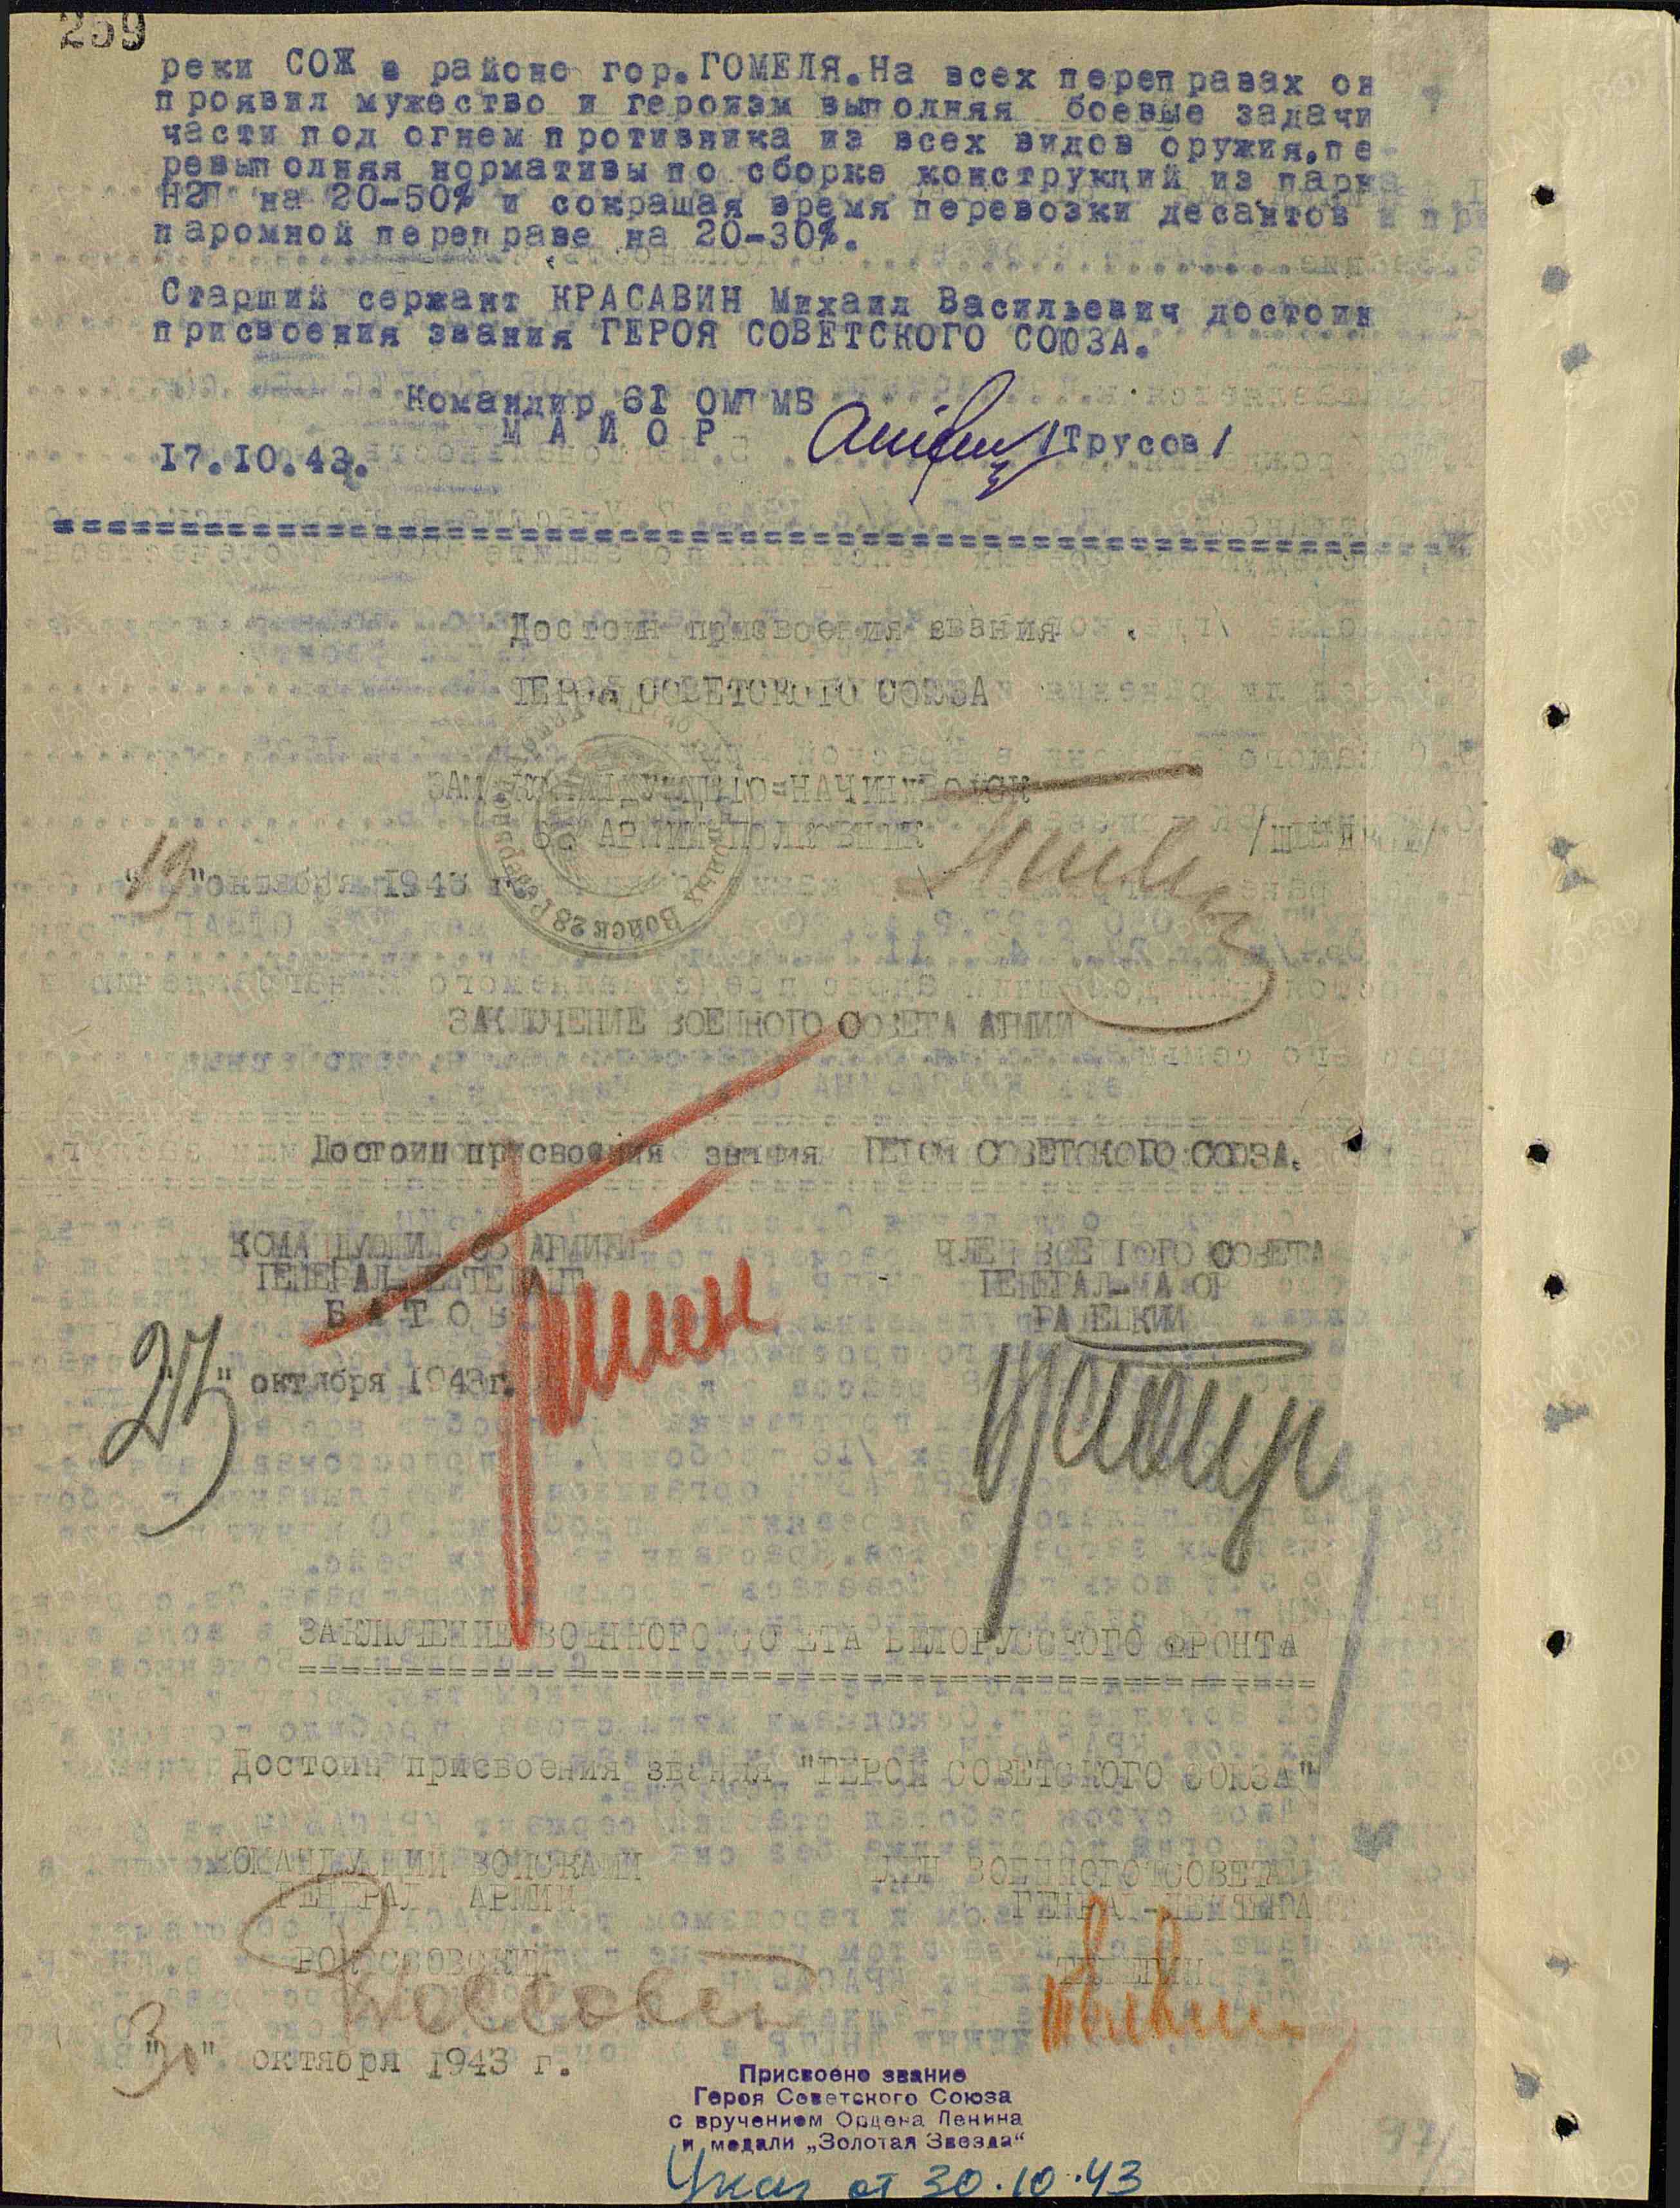 259
реки СОЖ в районе гор.ГОМЕЛЯ.На всех переправах он
проявил мужество и героизм выполняя боевые задачи
части под огнем противника из всех видов оружия,пе-
ревыполняя нормативы по сборке конструкций из парка
Н2П на 20-50% и сокращая время перевозки десантов и при
паромной переправе на 20-30%.
Старший сержант КРАСАВИН Михаил Васильевич достоин
присвоения звания ГЕРОЯ СОВЕТСКОГО СОЮЗА.
Командир 61 ОМПМБ
МАЙОР /Трусов/
17.10.43.
Достоин присвоения звания
ГЕРОЯ СОВЕТСКОГО СОЮЗА
ЗАМ
65 АРМИИ ПОЛКОВНИК
"19" октября 1943 г.
ЗАКЛЮЧЕНИЕ ВОЕННОГО СОВЕТА АРМИИ
Достоин присвоения звания ГЕРОЯ СОВЕТСКОГО СОЮЗА.
КОМАНДУЮЩИЙ 65 АРМИЕЙ ЧЛЕН ВОЕННОГО СОВЕТА
ГЕНЕРАЛ-ЛЕЙТЕНАНТ ГЕНЕРАЛ-МАЙОР
БАТОВ РАДЕЦКИЙ
" октября 1943г.
ЗАКЛЮЧЕНИЕ ВОЕННОГО СОВЕТА БЕЛОРУССКОГО ФРОНТА
Достоин присвоения звания "ГЕРОЙ СОВЕТСКОГО СОЮЗА"
КОМАНДУЮЩИЙ ВОЙСКАМИ ЧЛЕН ВОЕННОГО СОВЕТА
ГЕНЕРАЛ АРМИИ ГЕНЕРАЛ-ЛЕЙТЕНАНТ
РОКОССОВСКИЙ ТЕЛЕГИН
"30" октября 1943 г.
Присвоено звание
Героя Советского Союза
с вручением Ордена Ленина
и медали „Золотая Звезда“
Указ от 30.10.43